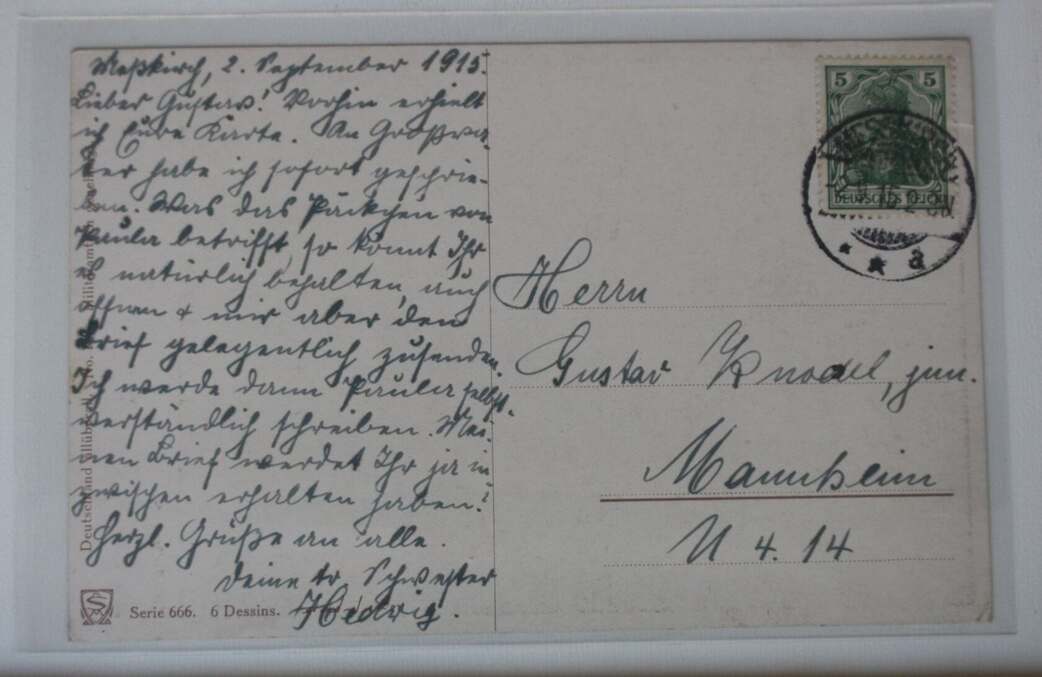 Meßkirch, 2. September 1915.
Lieber Gustav! Vorhin erhielt
ich Eure Karte. An Großva-
ter habe ich sofort geschrie-
ben. Was das Päckchen von
Paula betrifft, so könnt Ihr
es natürlich behalten, auch
öffnen + mir aber den
Brief gelegentlich zusenden.
Ich werde dann Paula selbst-
verständlich schreiben. Mei-
nen Brief werdet Ihr ja in
zwischen erhalten haben?
Herzl. Grüße an alle.
Deine tr. Schwester
Hedwig.
Serie 666. 6 Dessins.
5 5
DEUTSCHES REICH
* * a
Herrn
Gustav Knodel, jun.
Mannheim
U 4. 14